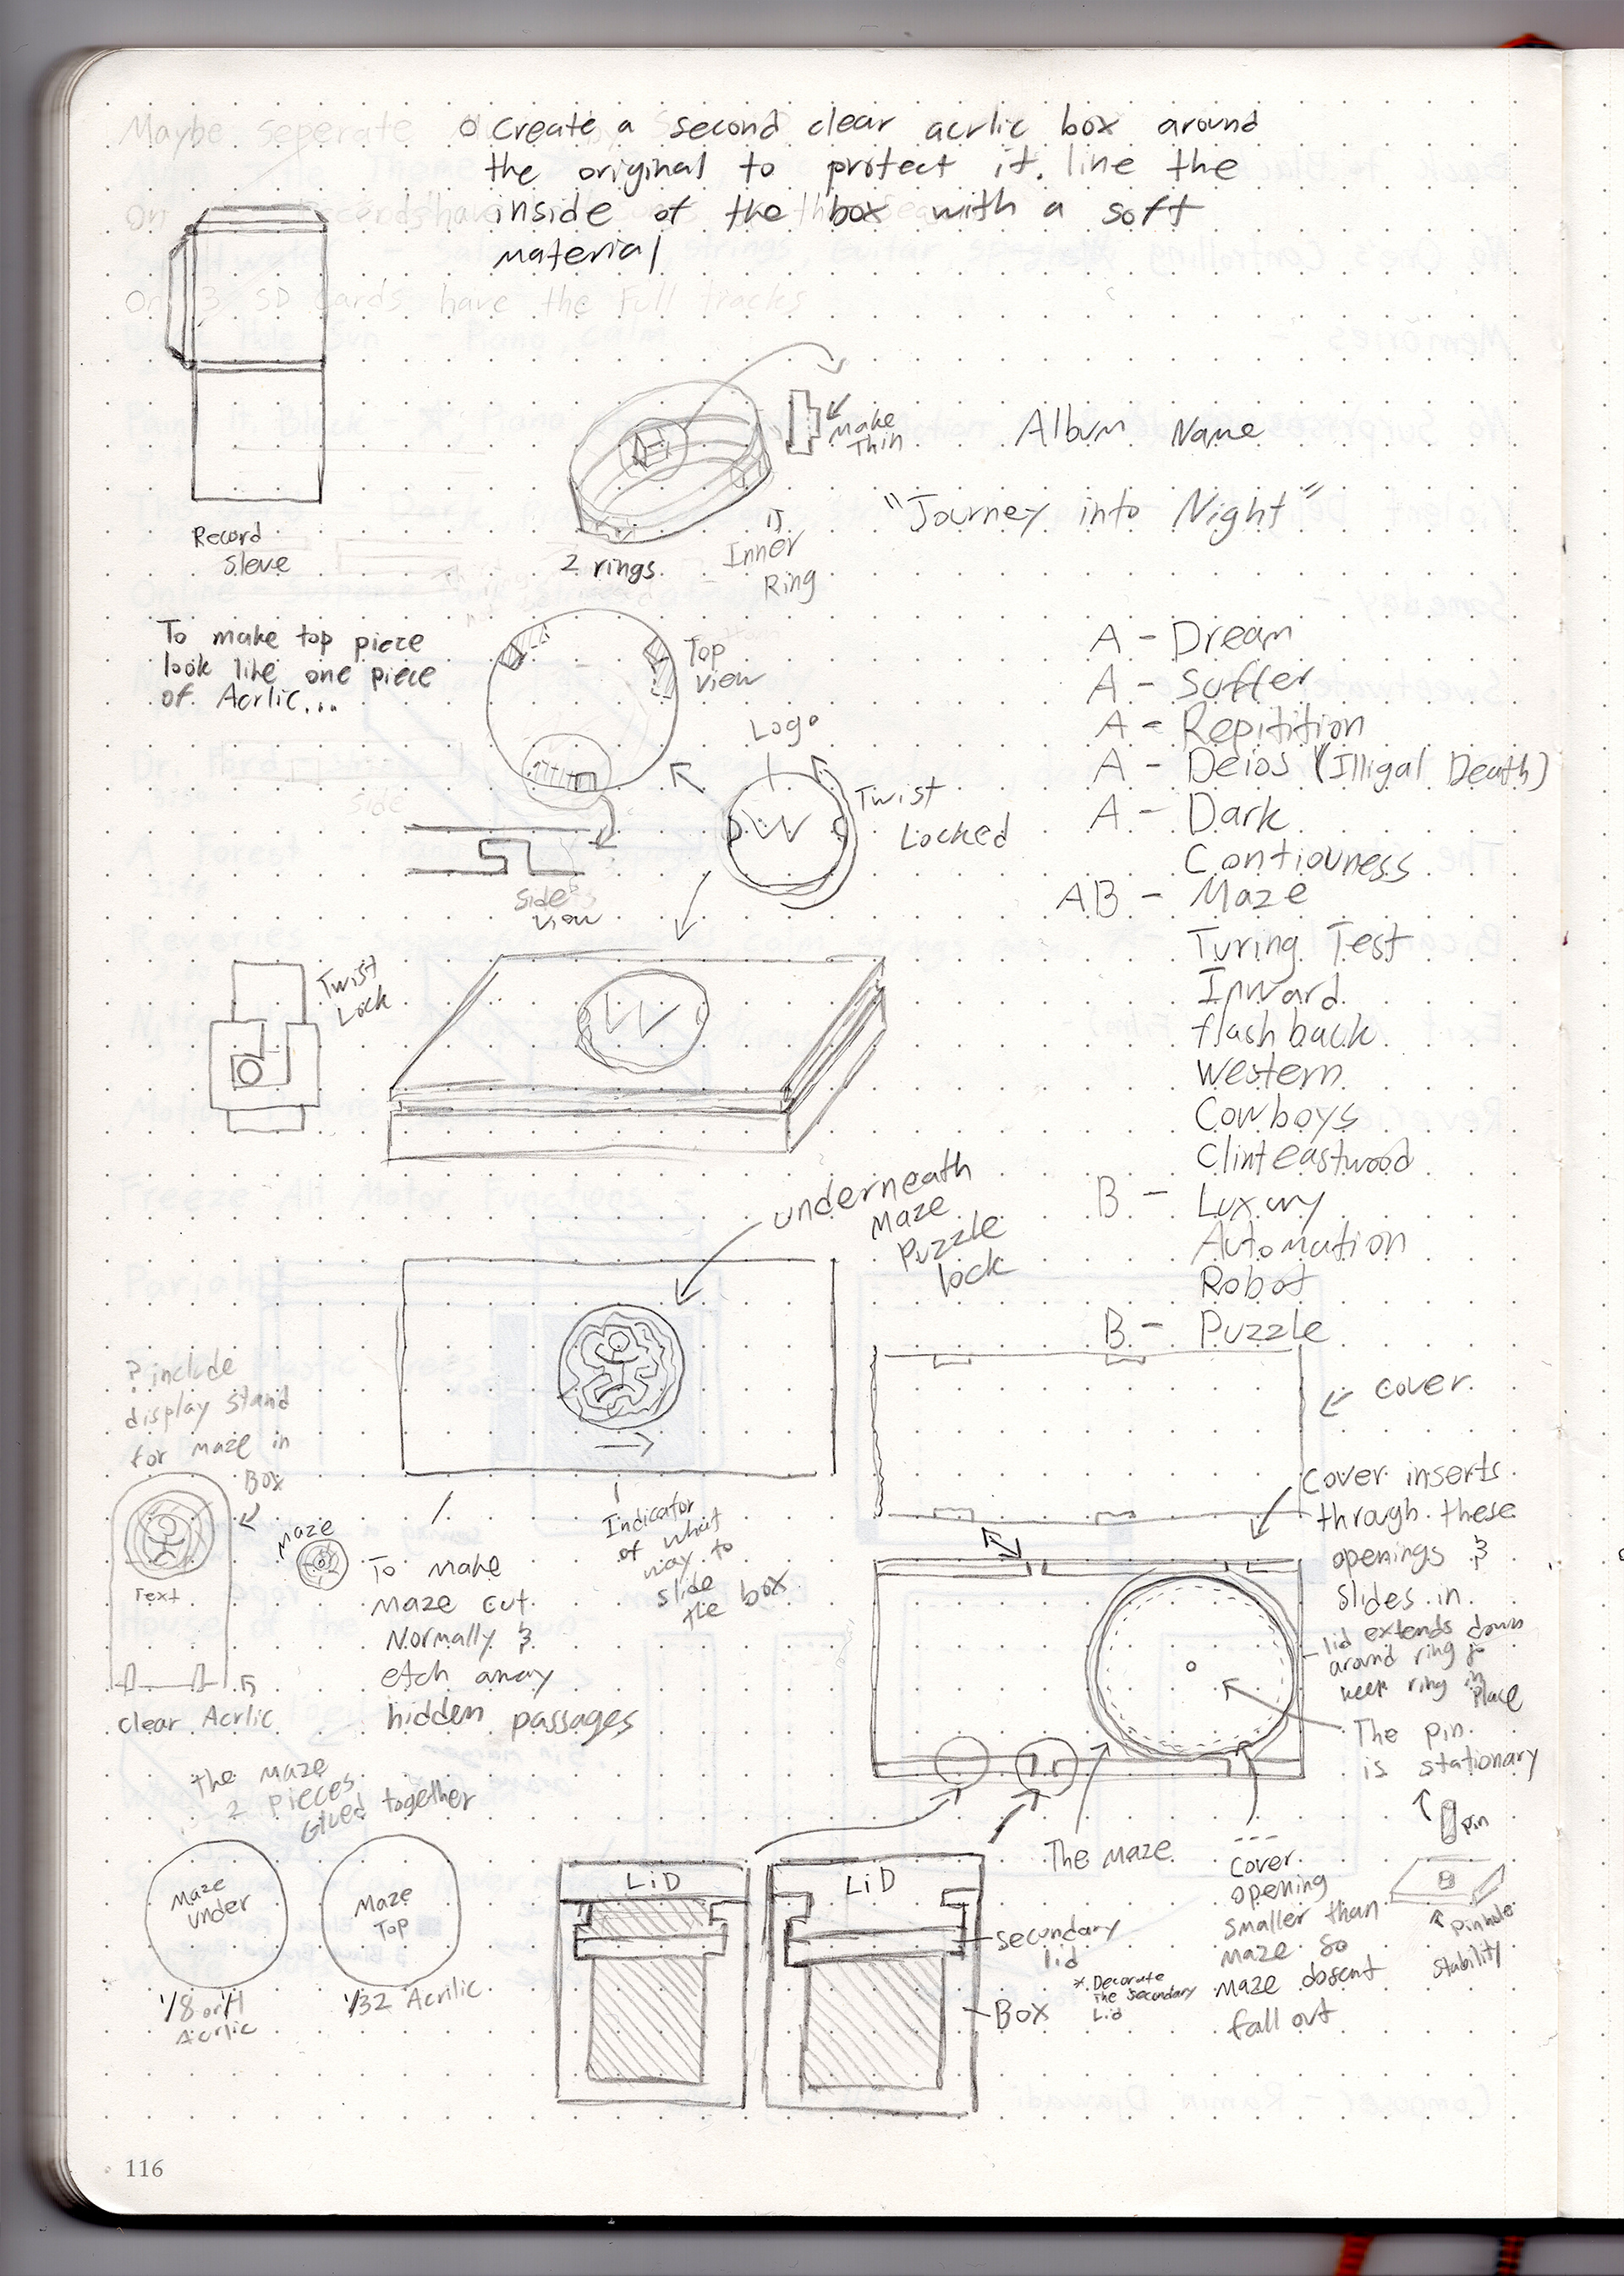 Create a second clear acrlic box around
the original to protect it. line the
inside of the box with a soft
material
Maybe seperate
On 3 SD Cards have the Full tracks
Record
Sleve
Make
Thin
2 rings
Inner
Ring
Album Name
"Journey into Night"
To make top piece
look like one piece
of Acrlic...
Top
View
Logo
W
Twist
Locked
Side
View
A - Dream
A - Suffer
A - Repitition
A - Deios (Illigal Death)
A - Dark
Contiouness
AB - Maze
Turing Test
Inward
flash back
Western
Cowboys
Clint eastwood
B - Luxury
Automation
Robot
B - Puzzle
Twist
Lock
W
underneath
Maze
Puzzle
lock
? include
display stand
for maze in
Box
Text
Clear Acrlic
Maze
To make
maze cut
Normally &
etch away
hidden passages
Indicator
of what
way to
slide
the box
cover
Cover inserts
through these
openings &
slides in
lid extends down
around ring to
keep ring in
Place
The pin
is stationary
Pin
Pinhole
Stability
The maze
2 pieces
Glued together
Maze
under
Maze
Top
1/8 or 1/4
Acrlic
1/32 Acrilic
LiD
LiD
secondary
lid
* Decorate
The Secondary
Lid
Box
The Maze
Cover
opening
smaller than
maze so
maze dosent
fall out
116